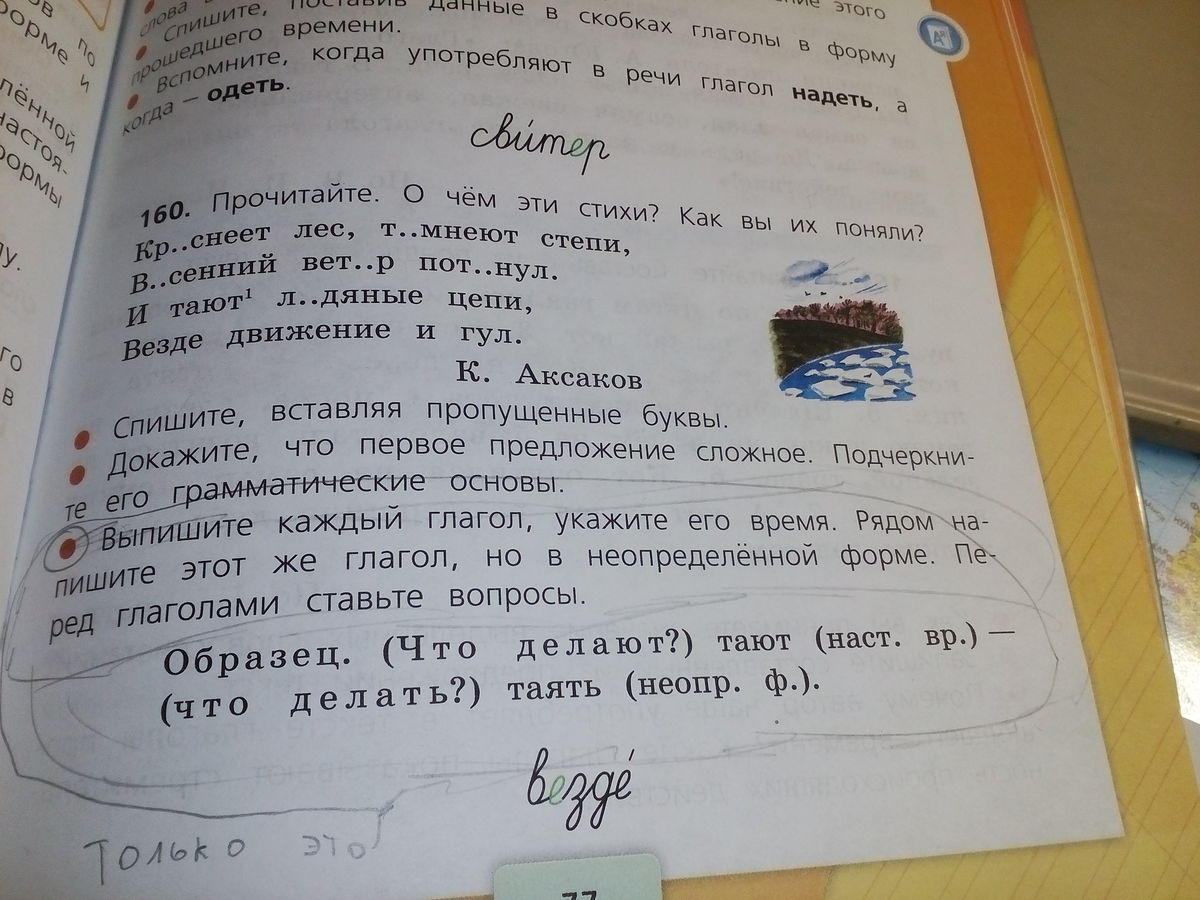 ов
орме и
по
лённой
настоя-
формы
лу.
го
в
слова в этого
• Спишите, поставив данные в скобках глаголы в форму
прошедшего времени.
• Вспомните, когда употребляют в речи глагол надеть, а
когда — одеть.
сви́тер
160. Прочитайте. О чём эти стихи? Как вы их поняли?
Кр..снеет лес, т..мнеют степи,
В..сенний вет..р пот..нул.
И тают¹ л..дяные цепи,
Везде движение и гул.
К. Аксаков
• Спишите, вставляя пропущенные буквы.
• Докажите, что первое предложение сложное. Подчеркни-
те его грамматические основы.
• Выпишите каждый глагол, укажите его время. Рядом на-
пишите этот же глагол, но в неопределённой форме. Пе-
ред глаголами ставьте вопросы.
Образец. (Что делают?) тают (наст. вр.) —
(что делать?) таять (неопр. ф.).
везде́
только это
77